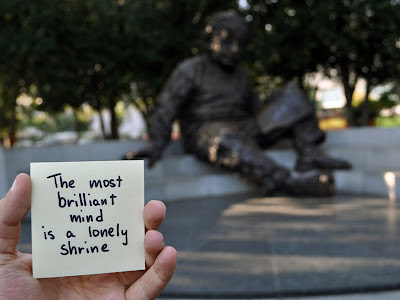 The most
brilliant
mind
is a lonely
shrine